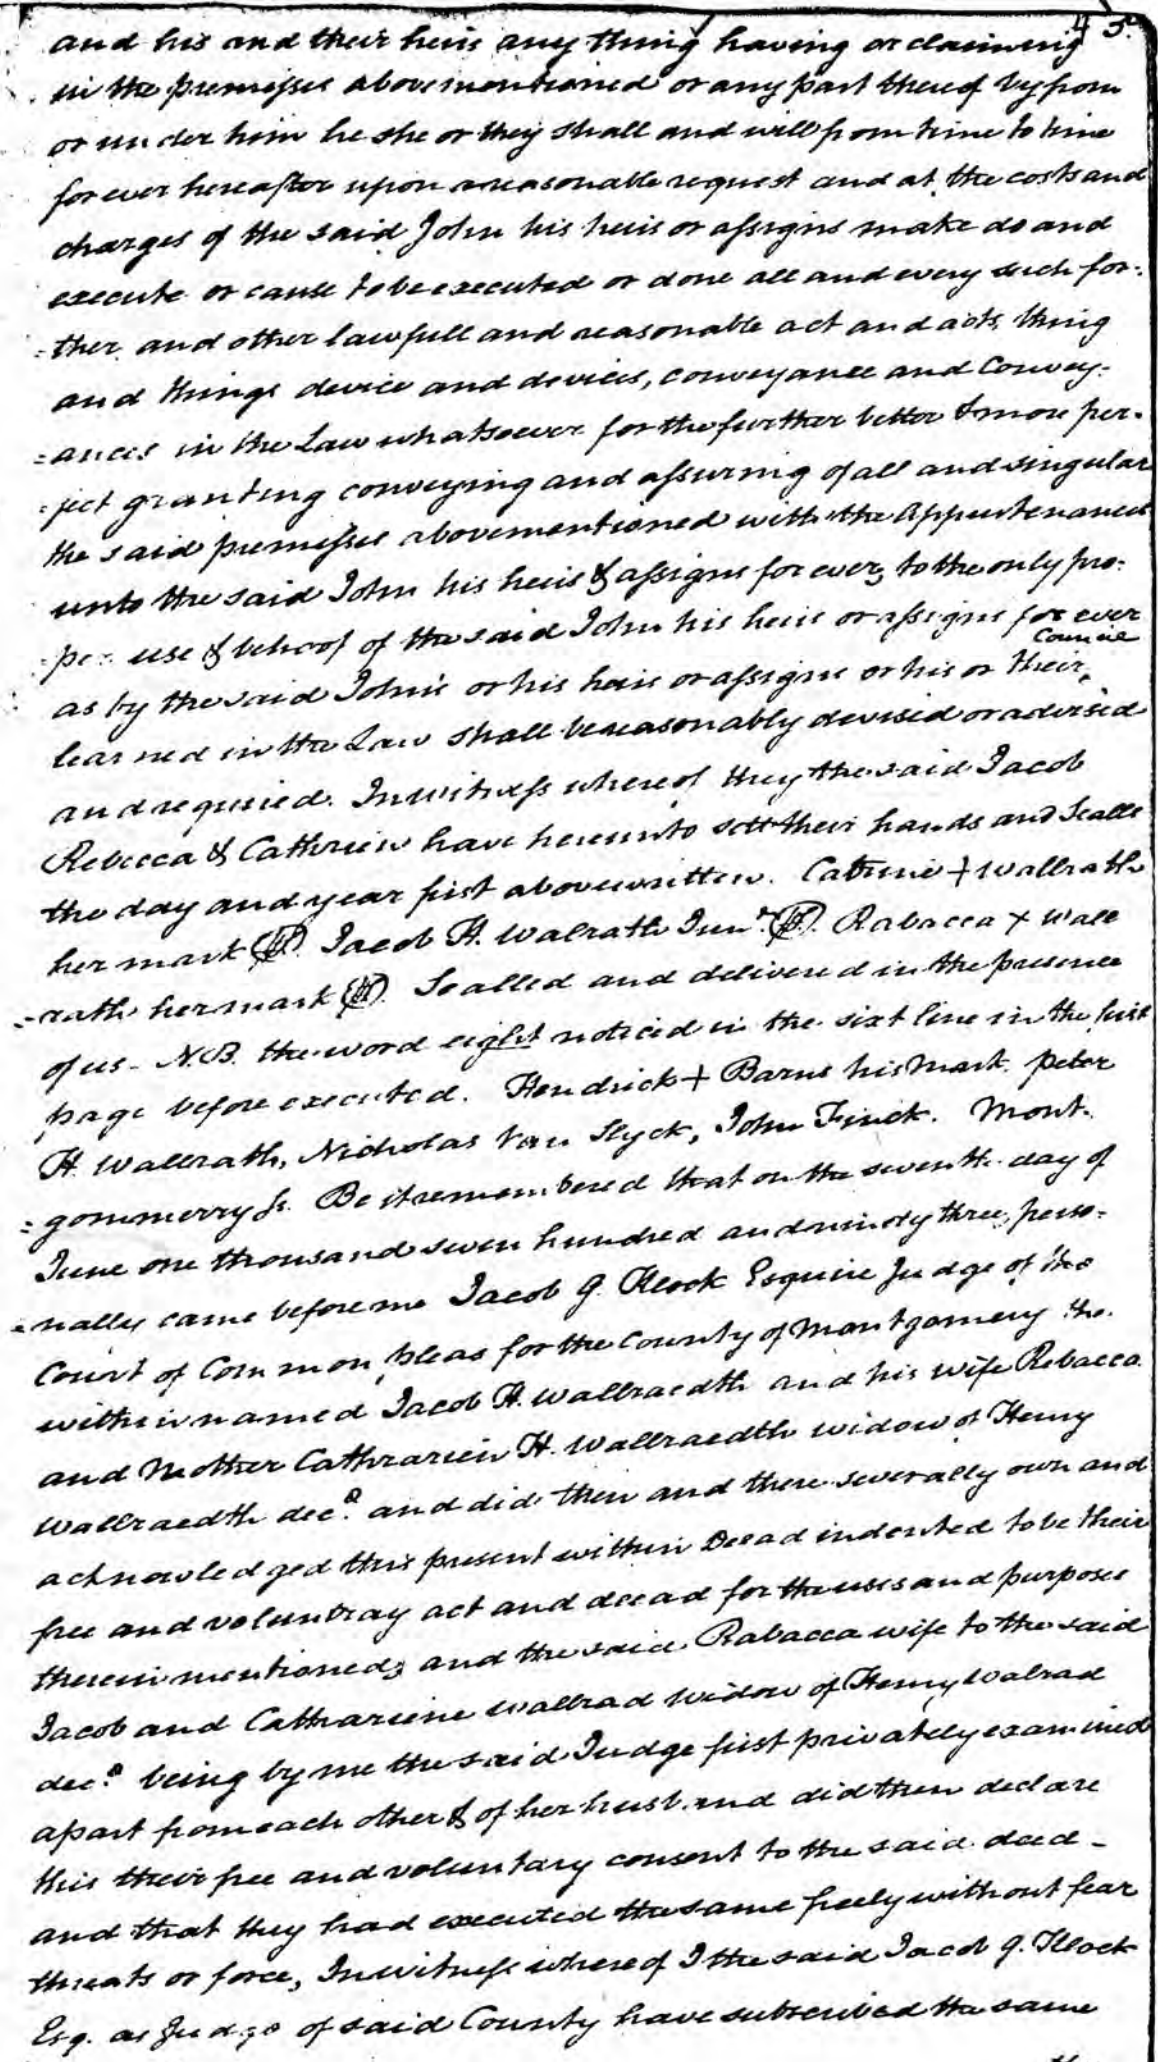 and his and their heirs any thing having or claiming
in the premisses abovementioned or any part thereof by from
or under him he she or they shall and will from time to time
for ever hereafter upon reasonable request and at the costs and
charges of the said John his heirs or assigns make do and
execute or cause to be executed or done all and every such for-
=ther and other lawfull and reasonable act and acts, thing
and things device and devices, conveyance and Convey-
=ances in the Law whatsoever for the further better & more per-
=fect granting conveying and assuring of all and singular
the said premisses abovementioned with the appurtenances
unto the said John his heirs & assigns for ever, to the only pro-
=per use & behoof of the said John his heirs or assigns for ever
as by the said John's or his heirs or assigns or his or their Councile
learned in the Law shall be reasonably devised or advised
and required. In witness whereof they the said Jacob
Rebecca & Cathrien have hereunto sett their hands and Sealls
the day and year first abovewritten. Catrine + Wallrath
her mark (LS). Jacob H. Walrath Junr. (LS). Rabacca + Wall
=rath her mark (LS). Sealled and delivered in the presence
of us - N.B. the word eight noticed in the sixt line in the first
page before executed. Hendrick + Barns his Mark. peter
H. Wallrath, Nicholas Van Slyck, John Finck. Mont-
=gommerry ss. Be it remembered that on the seventh day of
June one thousand seven hundred and ninety three, perso-
=nally came before me Jacob G. Klock Esquire Judge of the
Court of Common pleas for the County of Montgomery the
within named Jacob H. Wallraedth and his wife Rebacca
and Mother Cathrarien H. Wallraedth widow of Henry
Wallraedth decd. and did then and there severally own and
acknowledged this present within Deead indented to be their
free and voluntray act and deead for the uses and purposes
therein mentioned, and the said Rabacca wife to the said
Jacob and Cathariene Wallrad Widow of Henry Walrad
decd. being by me the said Judge first privately examined
apart from each other & of her husband did then declare
this their free and voluntary consent to the said deed -
and that they had executed the same freely without fear
threats or force, In witness whereof I the said Jacob G. Klock
Esq. as Judge of said County have subscribed the same